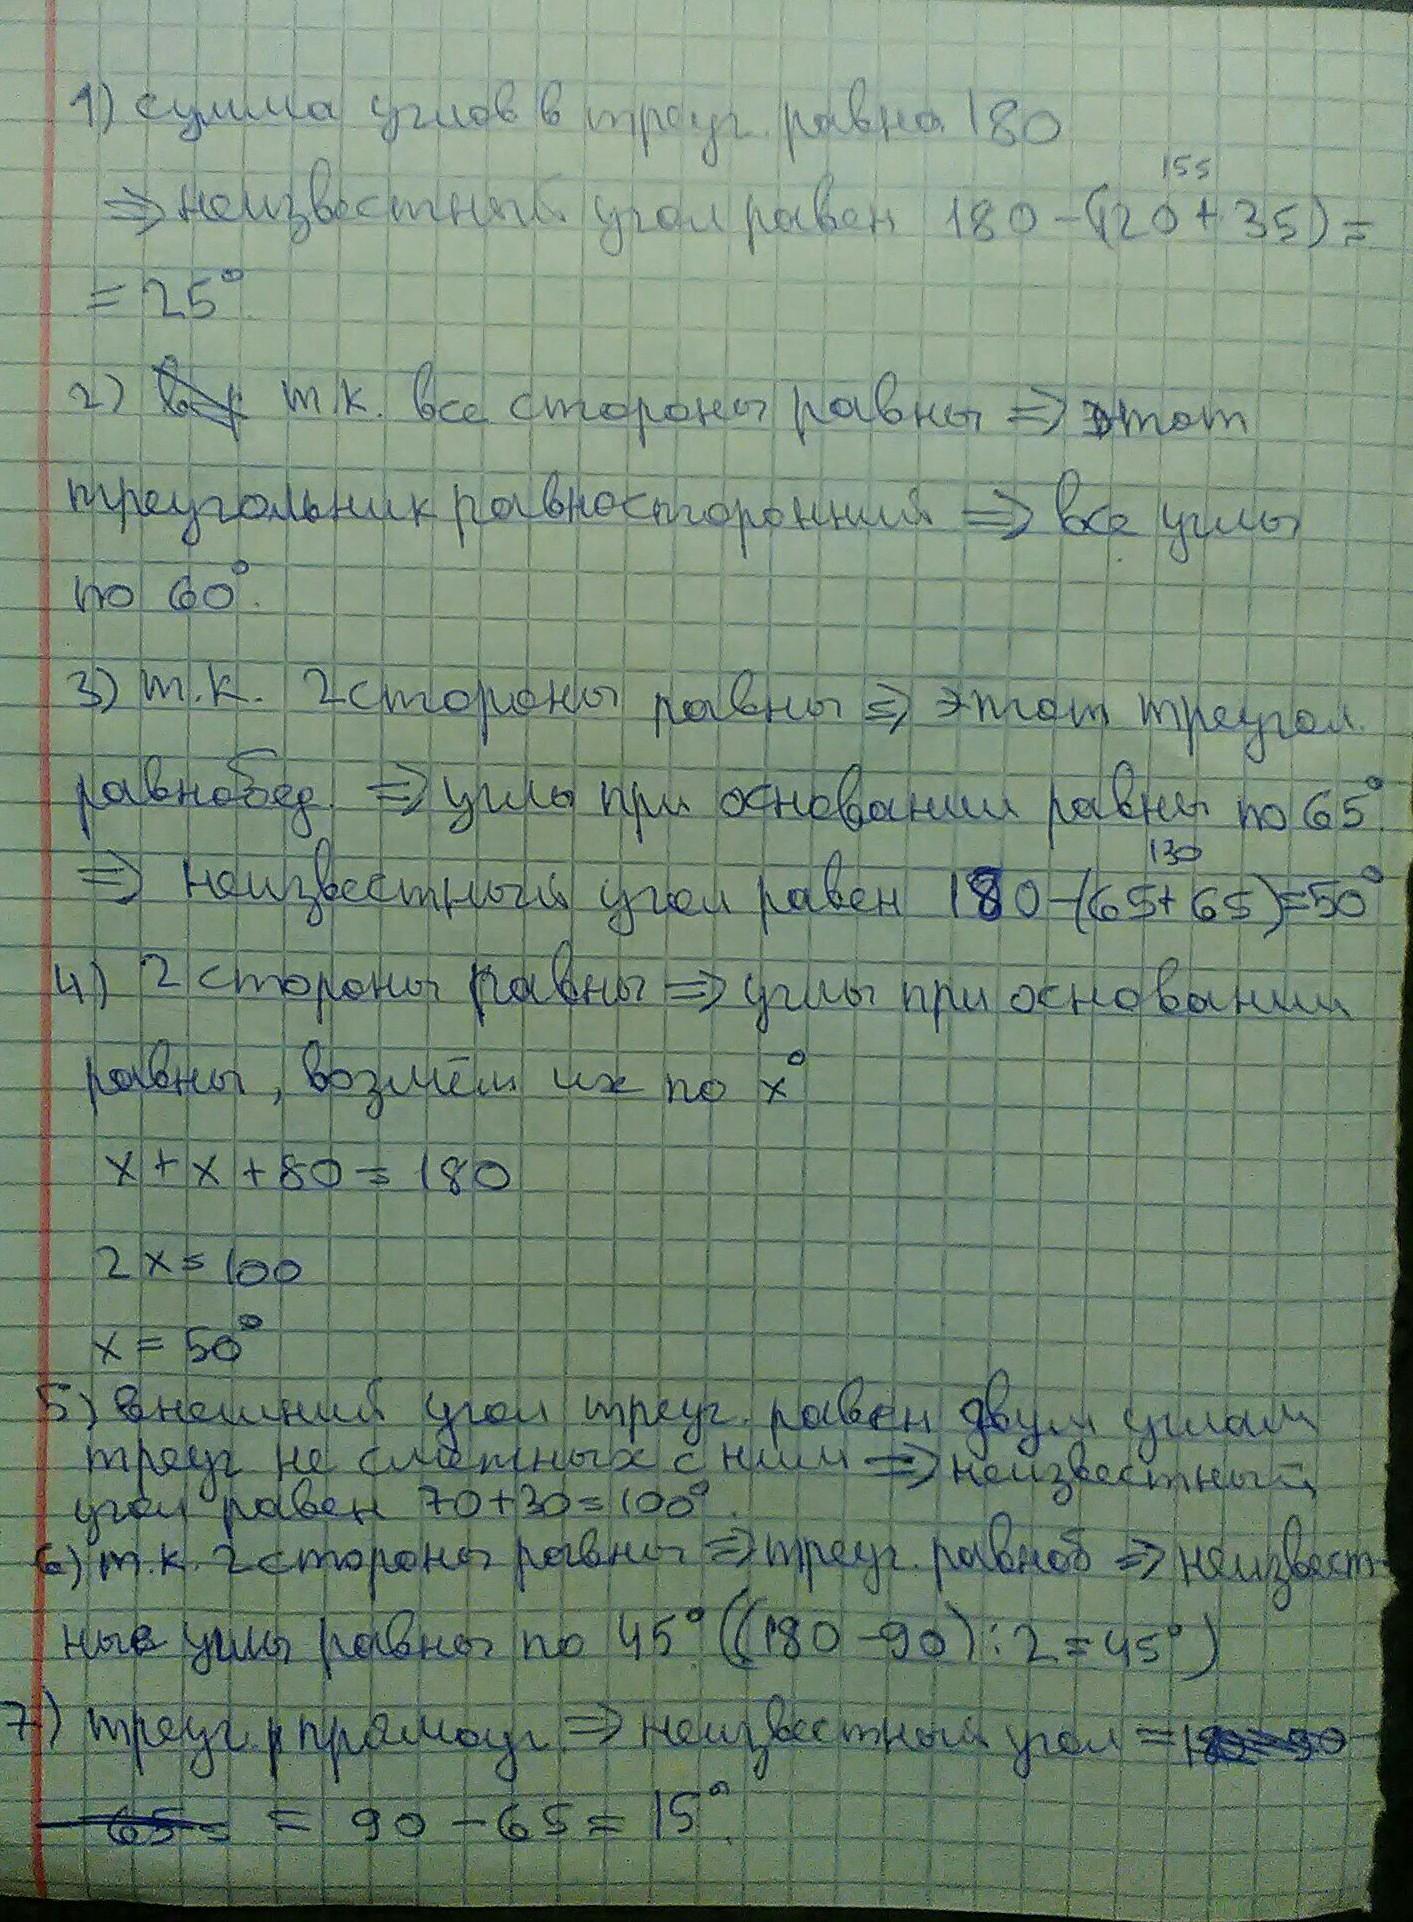 1) сумма углов в треуг. равна 180
155
⇒ неизвестный угол равен 180-(120+35)=
= 25°
2) т.к. все стороны равны ⇒ этот
треугольник равносторонний ⇒ все углы
по 60°.
3) т.к. 2 стороны равны ⇒ этот треугол.
равнобед. ⇒ углы при основании равны по 65°.
130
⇒ неизвестный угол равен 180-(65+65)=50°
4) 2 стороны равны ⇒ углы при основании
равны, возмём их по x°
x + x + 80 = 180
2x = 100
x = 50°
5) внешний угол треуг. равен двум углам
треуг не смежных с ним ⇒ неизвестный
угол равен 70+30=100°.
6) т.к. 2 стороны равны ⇒ треуг. равноб ⇒ неизвест-
ные углы равны по 45° ((180-90):2=45°)
7) треуг. прямоуг. ⇒ неизвестный угол = 180-90
65 = = 90-65=15°.